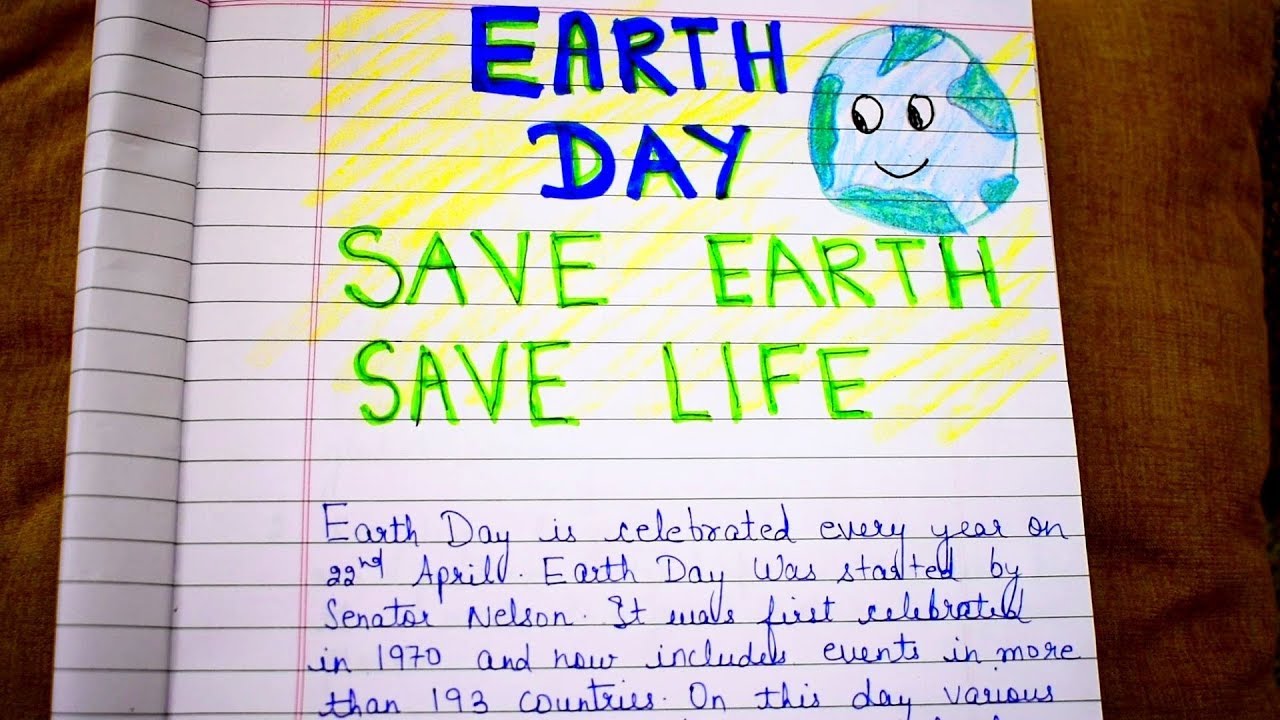 EARTH
DAY
SAVE EARTH
SAVE LIFE
Earth Day is celebrated every year on
22nd April. Earth Day Was started by
Senator Nelson. It was first celebrated
in 1970 and now includes events in more
than 193 countries. On this day various